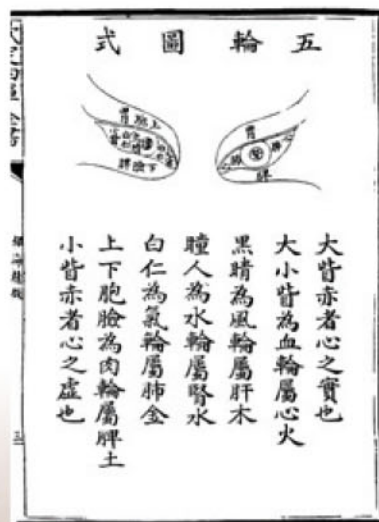 五輪圖式
胃
上胞
下瞼
脾
胃
脾
大眥赤者心之實也
大小眥為血輪屬心火
黑睛為風輪屬肝木
瞳人為水輪屬腎水
白仁為氣輪屬肺金
上下胞瞼為肉輪屬脾土
小眥赤者心之虛也